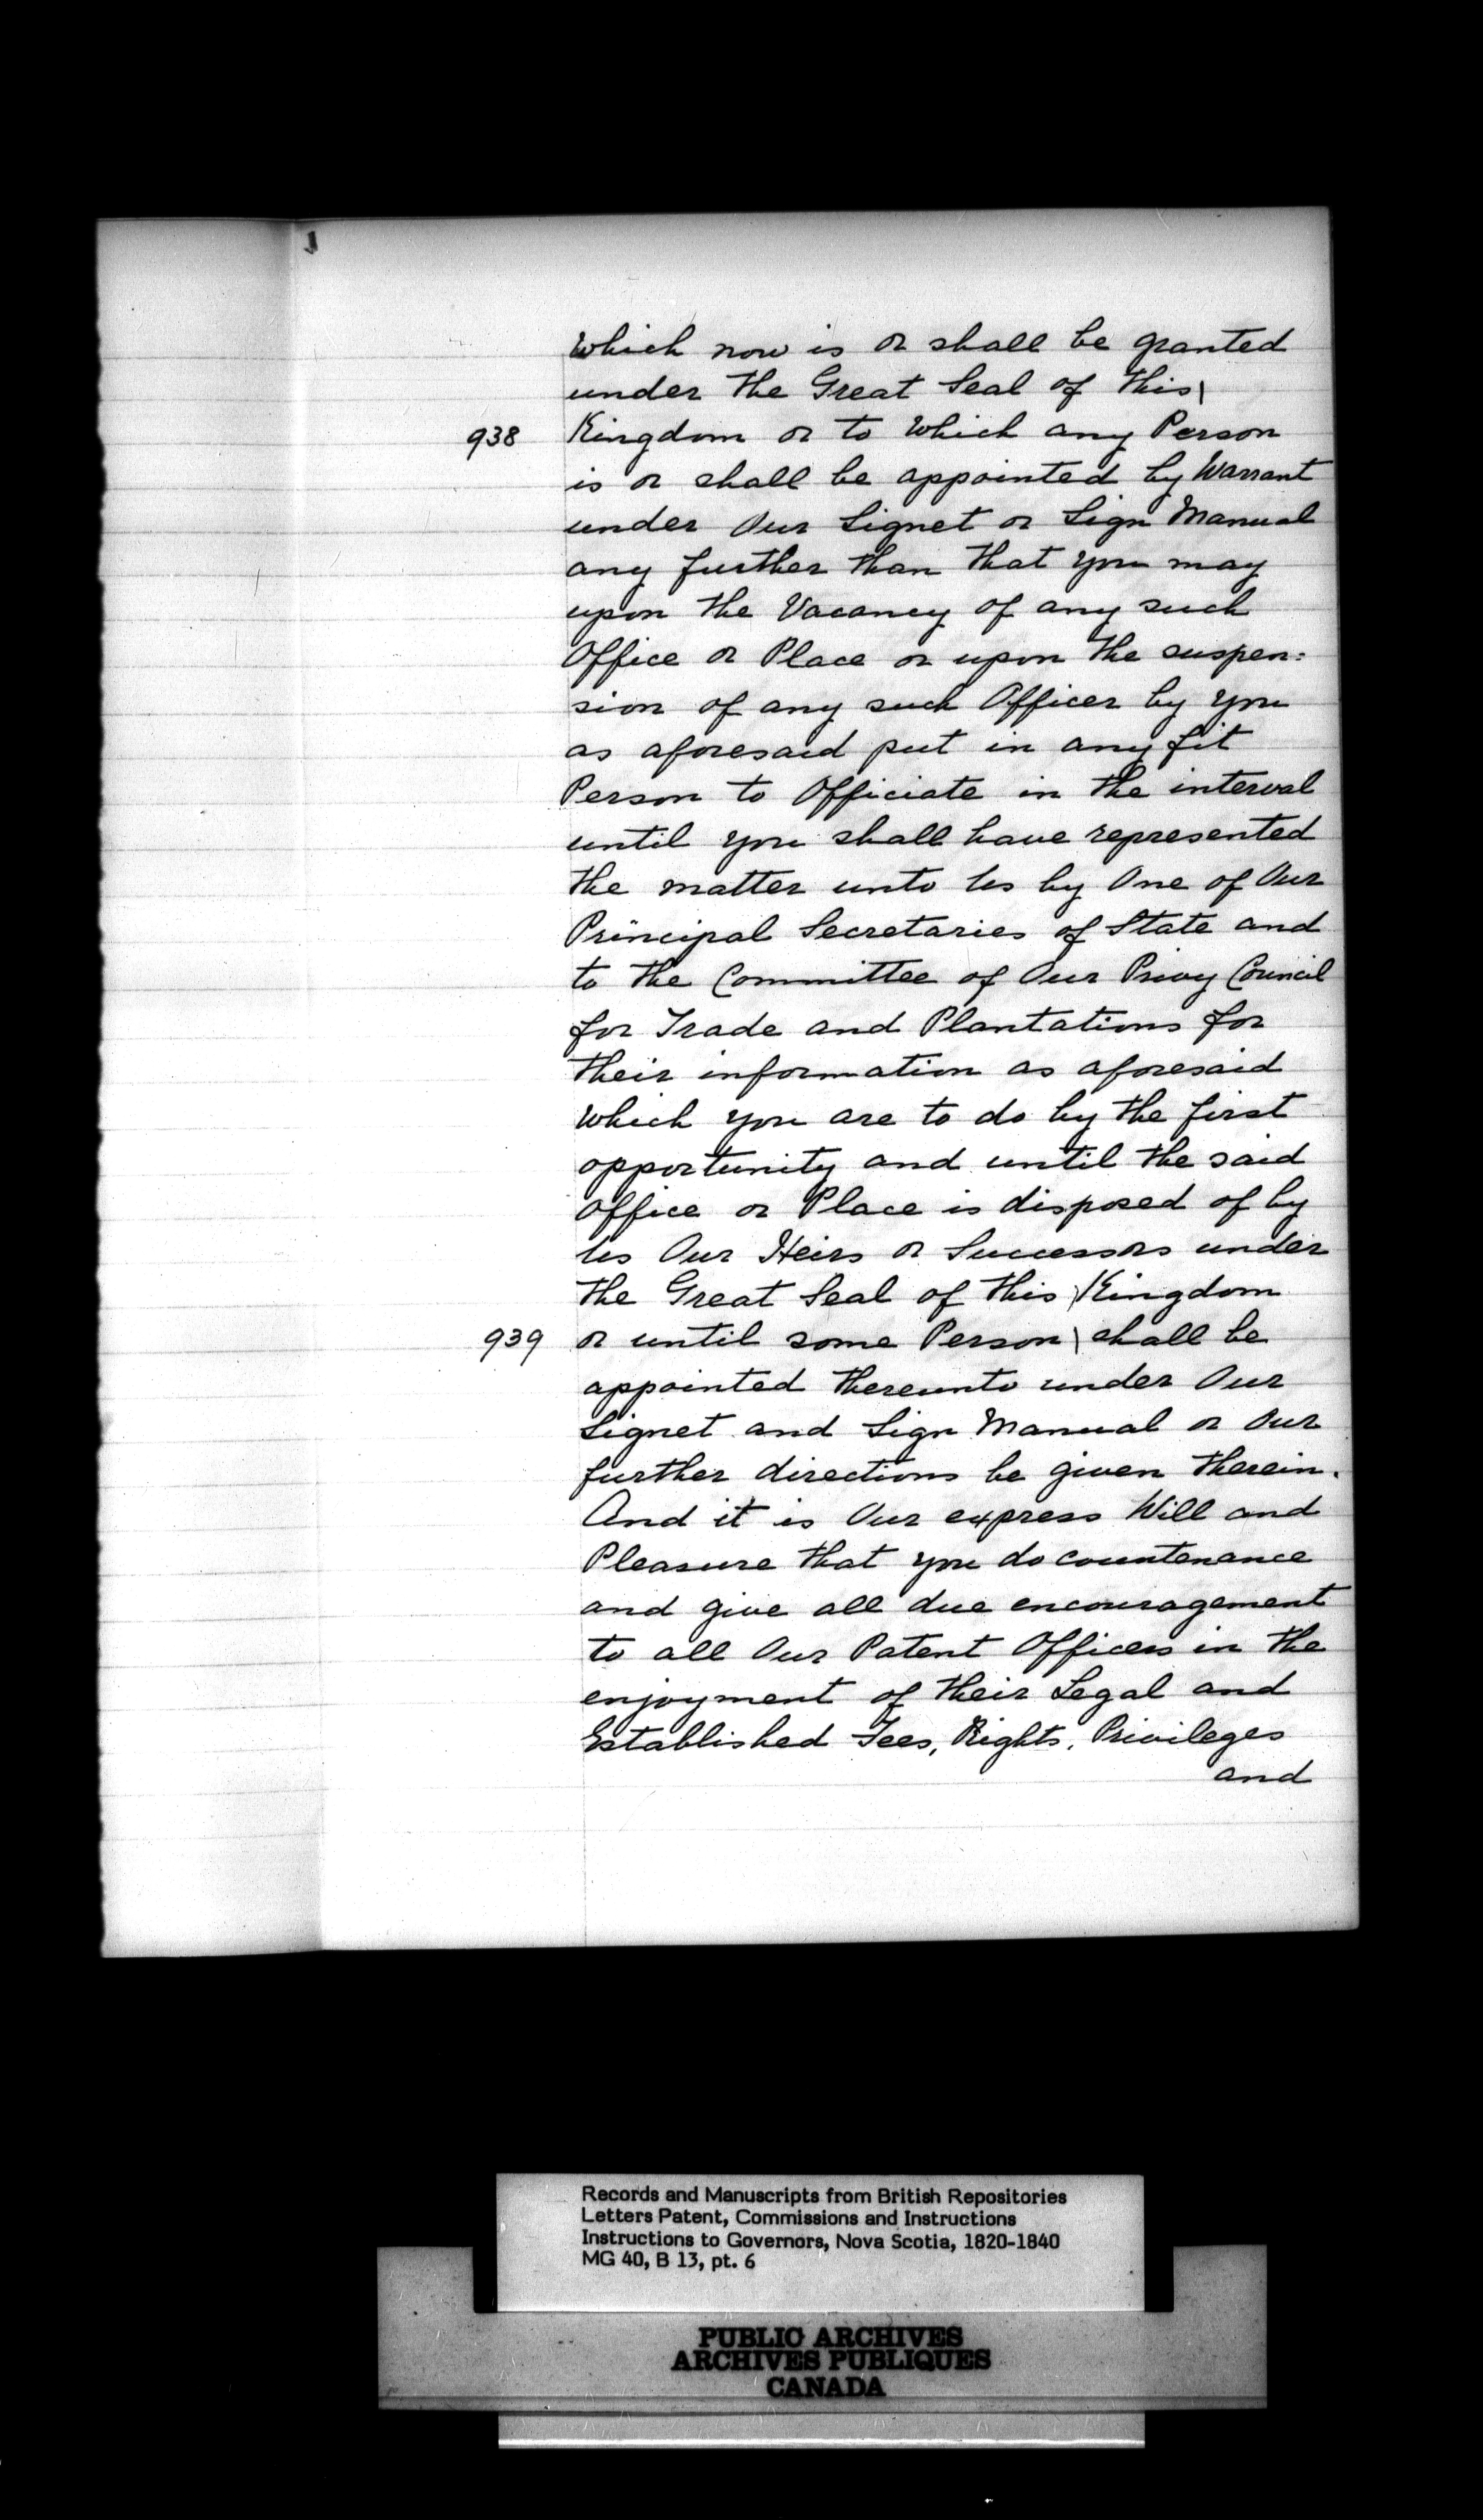 Which now is or shall be granted
under the Great Seal of this\
938 Kingdom or to Which any Person
is or shall be appointed by Warrant
under Our Signet or Sign Manual
any further than that you may
upon the Vacancy of any such
Office or Place or upon the suspen:
sion of any such Officer by you
as aforesaid put in any fit
Person to Officiate in the interval
until you shall have represented
the matter unto Us by One of Our
Principal Secretaries of State and
to the Committee of Our Privy Council
for Trade and Plantations for
their information as aforesaid
Which you are to do by the first
opportunity and until the said
Office or Place is disposed of by
Us Our Heirs or Successors under
the Great Seal of this \Kingdom
939 or until some Person \ shall be
appointed thereunto under Our
Signet and Sign Manual or Our
further directions be given therein.
And it is Our express Will and
Pleasure that you do countenance
and give all due encouragement
to all Our Patent Officers in the
enjoyment of their Legal and
Established Fees, Rights, Privileges
and
Records and Manuscripts from British Repositories
Letters Patent, Commissions and Instructions
Instructions to Governors, Nova Scotia, 1820-1840
MG 40, B 13, pt. 6
PUBLIC ARCHIVES
ARCHIVES PUBLIQUES
CANADA